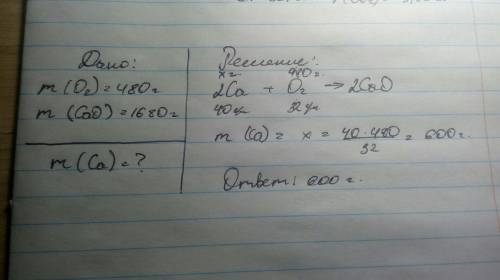 Дано:
m (O₂) = 480г
m (CaO) = 1680г
m (Ca) = ?
Решение:
xг 480г.
2Ca + O₂ → 2CaO
40г 32г
m (Ca) = x = 40·480 / 32 = 600г.
Ответ: 600г.